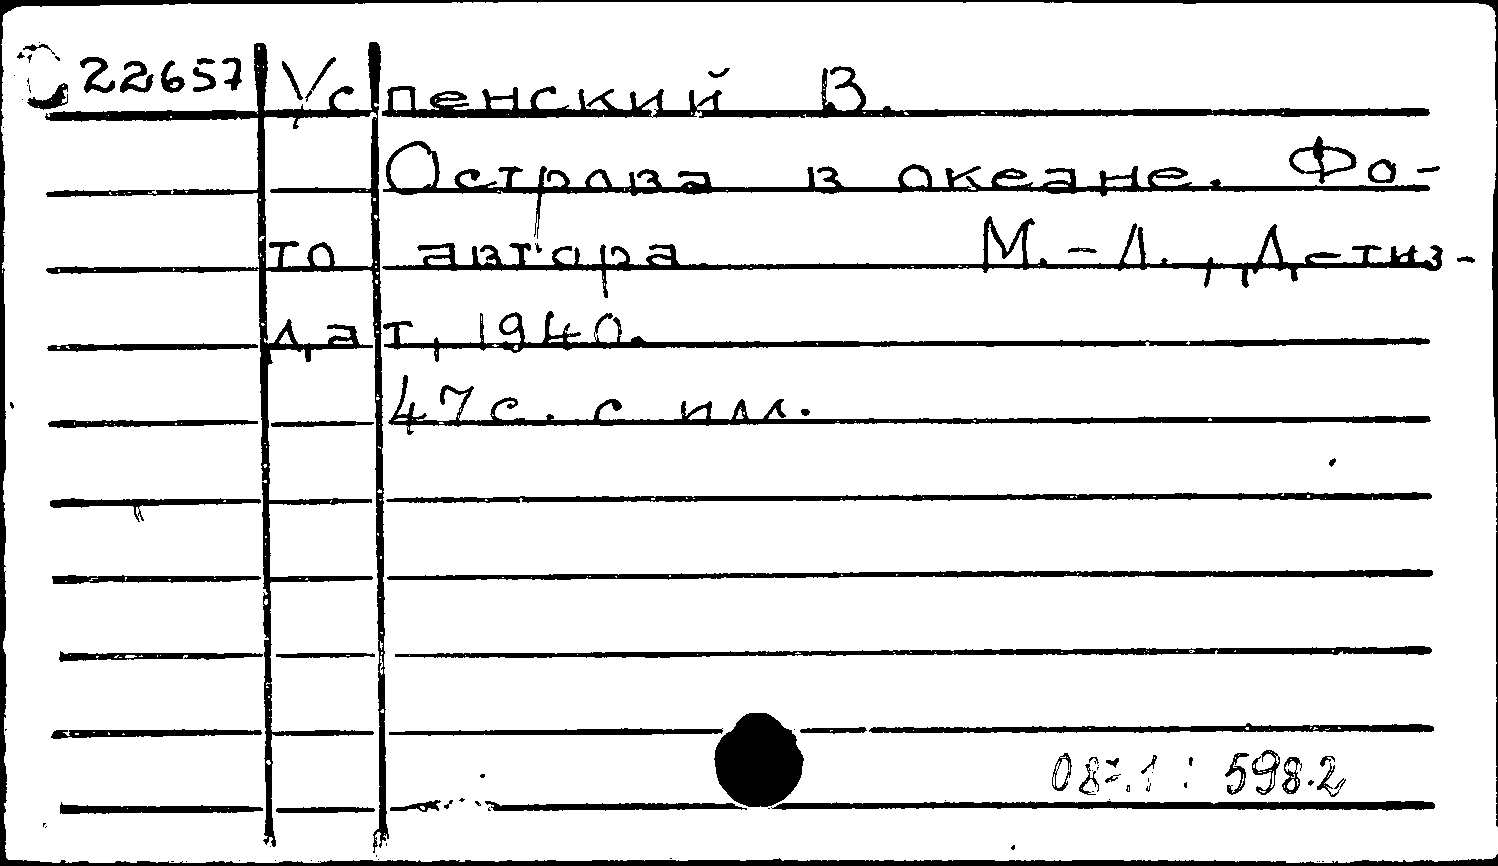 22657 Успенский В.
Острова в океане. Фо-
то автора. М.-Л., Детиз-
дат, 1940.
47 с. с илл.
087.1 : 598.2